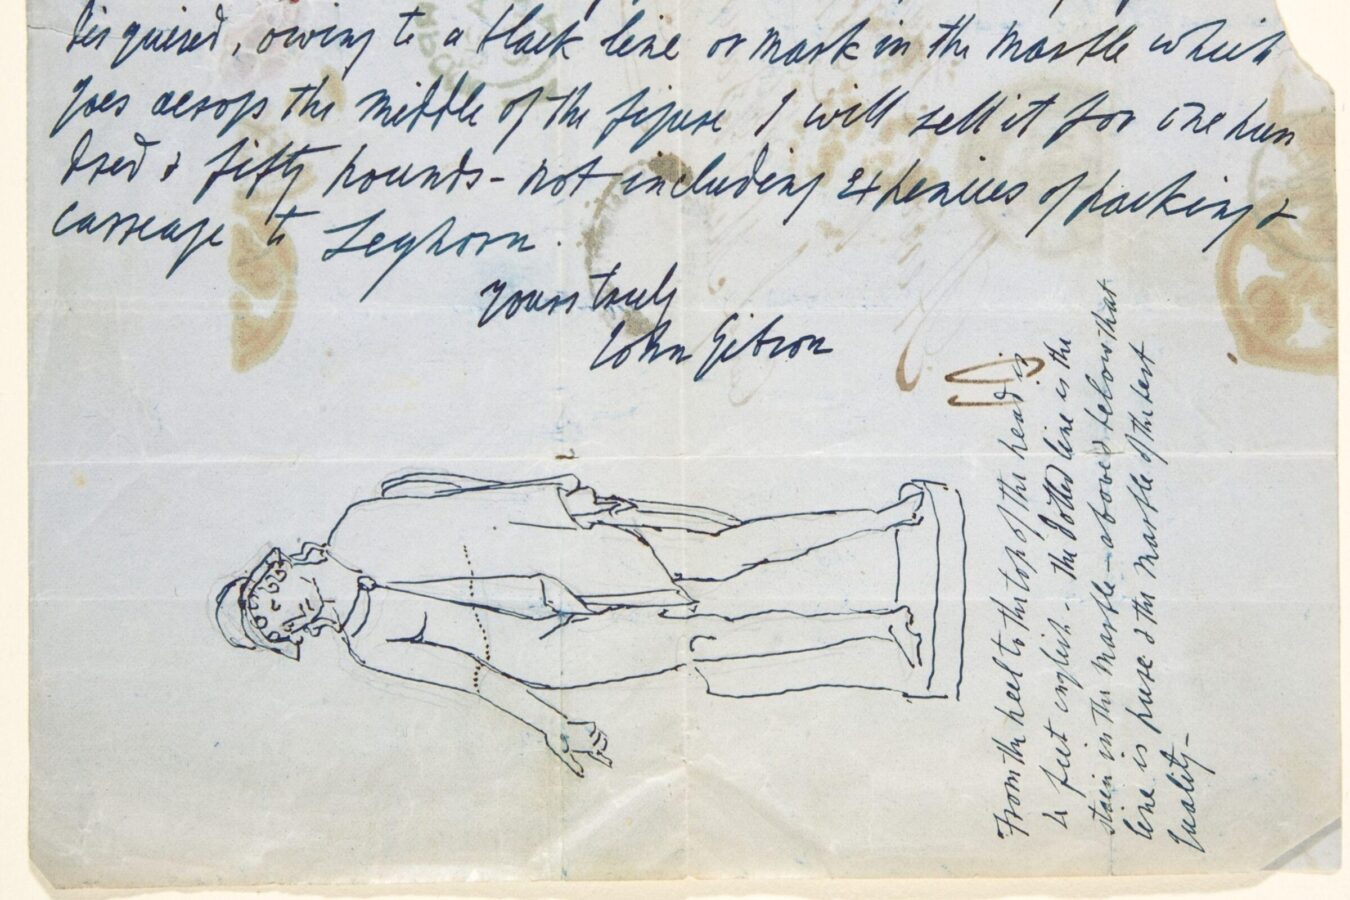 disguised, owing to a black line or mark in the marble which
goes across the middle of the figure I will sell it for one hun
dred & fifty pounds - not including expences of packing &
carreage to Leghorn.
yours truly
John Gibson
From the heel to the top of the head is
4 feet english - the dotted line is the
stain in the marble - above & below that
line is pure & the marble of the best
quality -